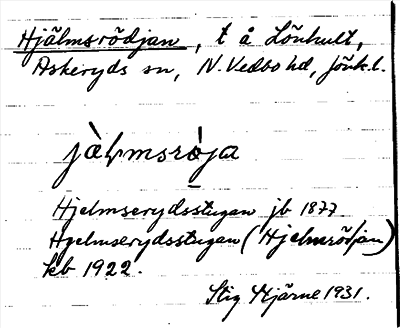 Hjälmsrödjan, t å Lönhult,
Askeryds sn, N. Vedbo hd, Jönk.l.
jàḷmsrøja
Hjelmserydsstugan jb 1877
Hgelmserydsstugan (Hjelmrödjan)
kb 1922.
Stig Hjärne 1931.